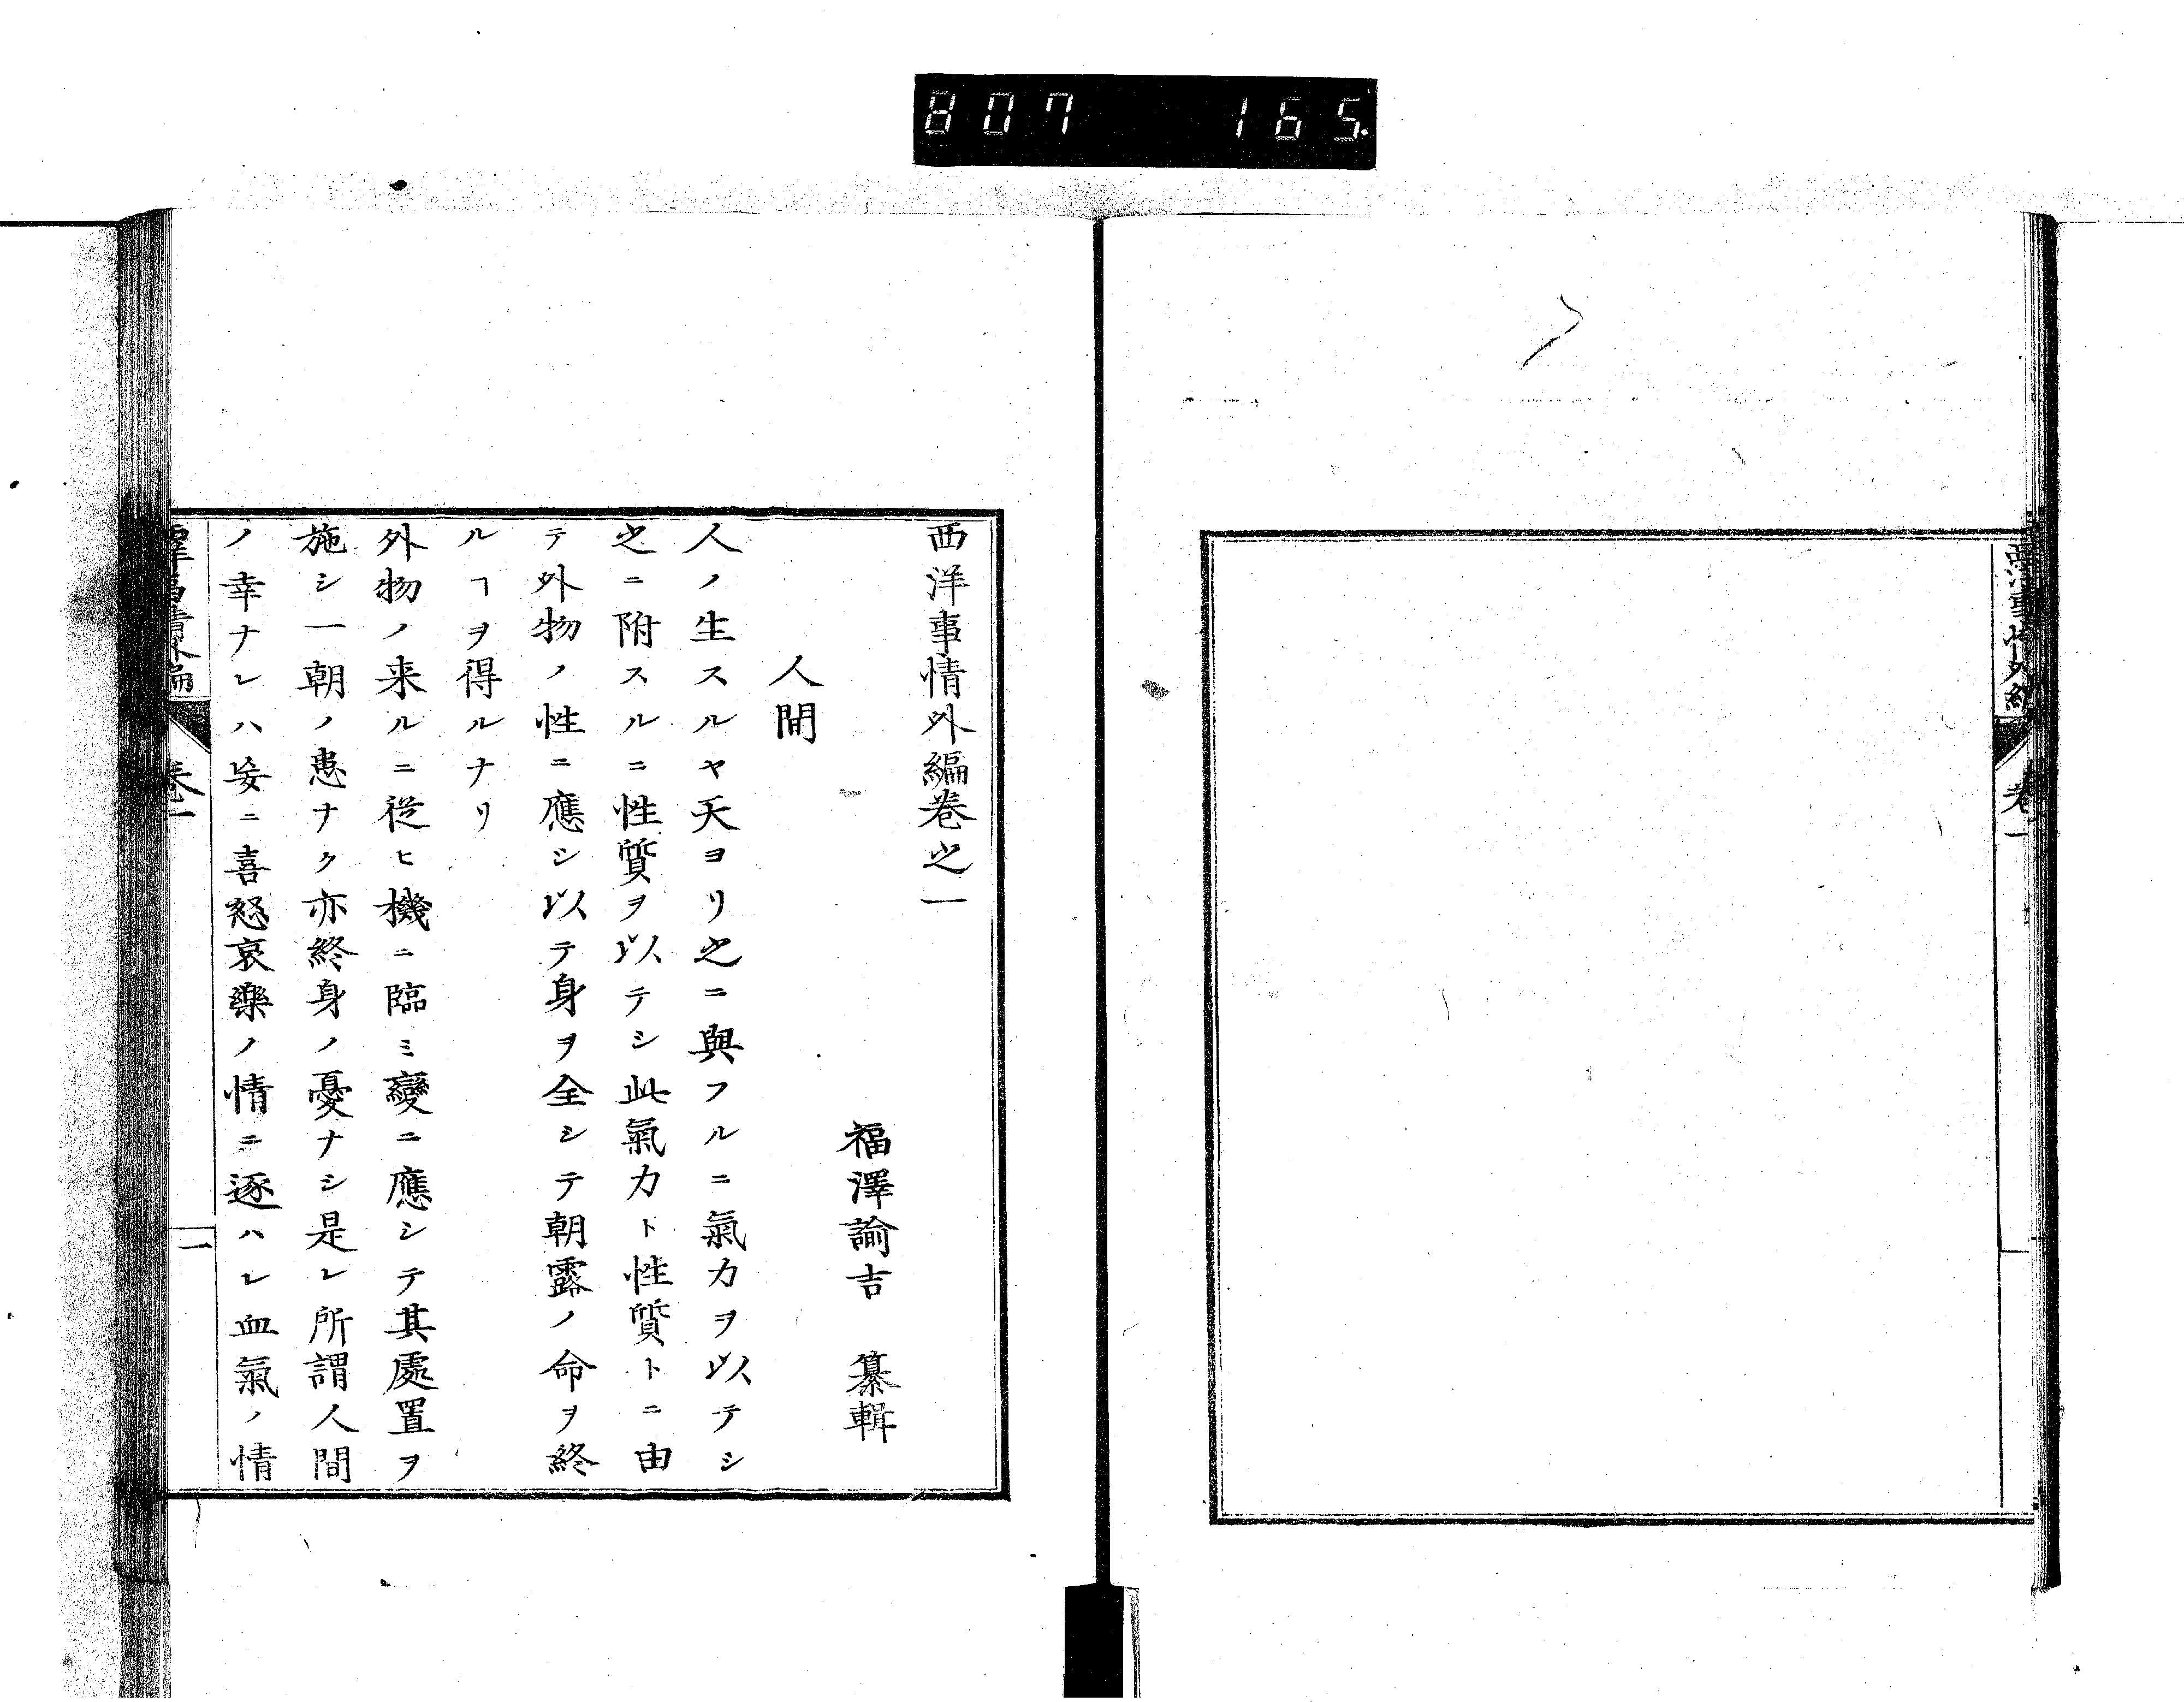 807 165.
西洋事情外編 卷一
西洋事情外編卷之一
福澤諭吉 纂輯
人間
人ノ生スルヤ天ヨリ之ニ與フルニ氣力ヲ以テシ
之ニ附スルニ性質ヲ以テシ此氣力ト性質トニ由
テ外物ノ性ニ應シ以テ身ヲ全シテ朝露ノ命ヲ終
ルヿヲ得ルナリ
外物ノ来ルニ從ヒ機ニ臨ミ變ニ應シテ其處置ヲ
施シ一朝ノ患ナク亦終身ノ憂ナシ是レ所謂人間
ノ幸ナレハ妄ニ喜怒哀樂ノ情ニ逐ハレ血氣ノ情
西洋事情外編 卷一 一